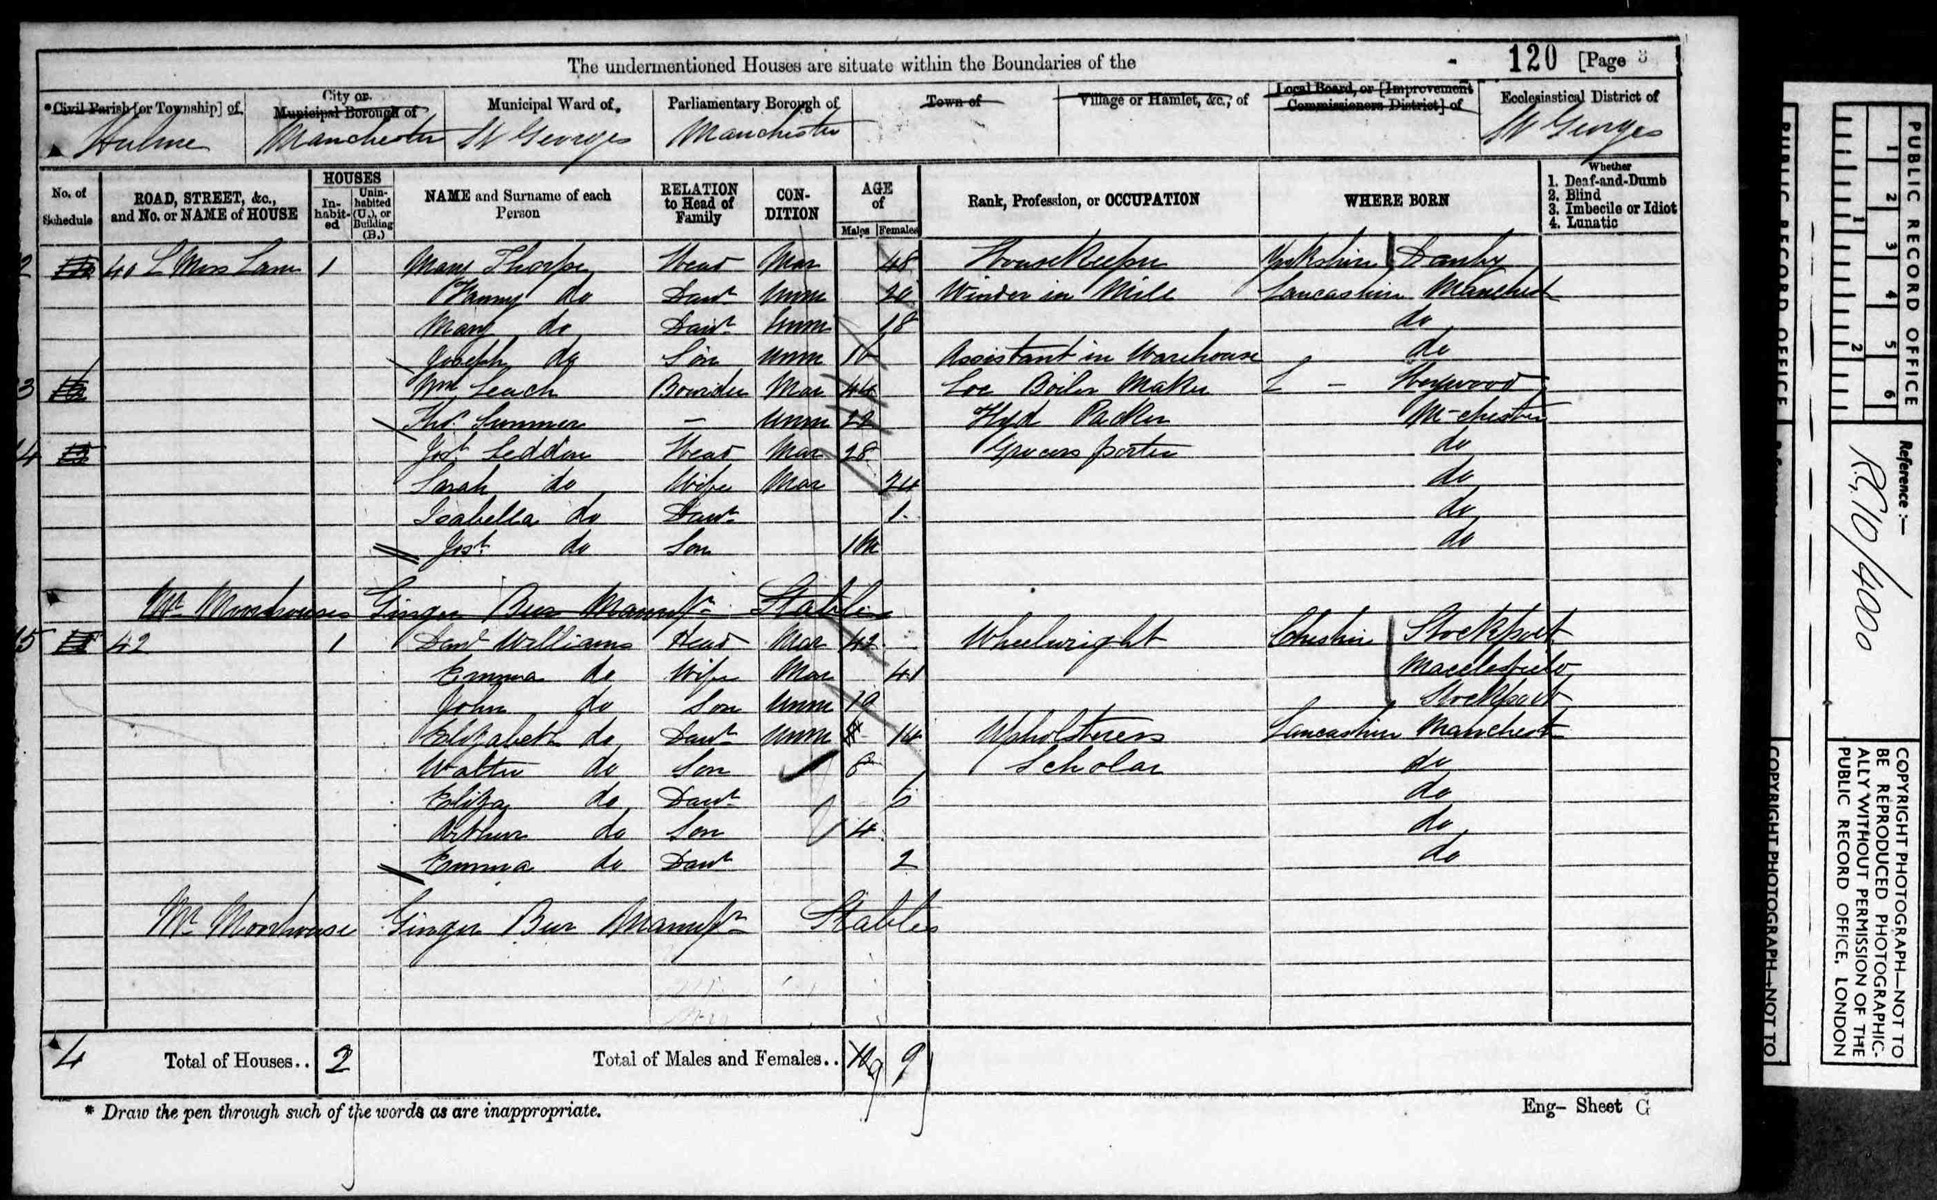 The undermentioned Houses are situate within the Boundaries of the
120 [Page 3
*Civil Parish [or Township] of
City or Municipal Borough of
Municipal Ward of
Parliamentary Borough of
Town of
Village or Hamlet, &c., of
Local Board, or [Improvement Commissioners District] of
Ecclesiastical District of
Hulme Manchester St Georges Manchester St Georges
No. of Schedule
ROAD, STREET, &c., and No. or NAME of HOUSE
HOUSES
In-habit-ed
Unin-habited (U.), or Building (B.)
NAME and Surname of each Person
RELATION to Head of Family
CON-DITION
AGE of
Males Females
Rank, Profession, or OCCUPATION
WHERE BORN
Whether
1. Deaf-and-Dumb
2. Blind
3. Imbecile or Idiot
4. Lunatic
2 40 Moss Lane 1 Mary Thorpe Head Mar 48 Housekeeper Yorkshire Danby
Fanny do Daur Unm 20 Winder in Mill Lancashire Manchest
Mary do Daur Unm 18 do
Joseph do Son Unm 16 Assistant in Warehouse do
3 Wm Leach Boarder Mar 44 Loc Boiler Maker L - Heywood
Thos Sumner - Unm 22 Hyd Packer M-chester
4 Josh Seddon Head Mar 28 Grocers porter do
Sarah do Wife Mar 24 do
Isabella do Daur 1 do
Josh do Son 1 M do
Mr Moorhouses Ginger Beer Manufr Stables
15 42 1 Davd Williams Head Mar 42 Wheelwright Cheshire Stockport
Emma do Wife Mar 41 Macclesfield
John do Son Unm 19 Stockport
Elizabeth do Daur Unm 14 Upholsteress Lancashire Manchest
Walter do Son 8 Scholar do
Eliza do Daur 6 do
Arthur do Son 4 do
Emma do Daur 2 do
Mr Moorhouse Ginger Beer Manufr Stables
4 Total of Houses.. 2 Total of Males and Females.. 10 9 9
* Draw the pen through such of the words as are inappropriate.
Eng- Sheet G
PUBLIC RECORD OFFICE
1 2 3 4 5 6
1 2
Reference:-
RG.10/4000
COPYRIGHT PHOTOGRAPH—NOT TO
BE REPRODUCED PHOTOGRAPHIC-
ALLY WITHOUT PERMISSION OF THE
PUBLIC RECORD OFFICE, LONDON
PUBLIC RECORD OFFICE
COPYRIGHT PHOTOGRAPH—NOT TO